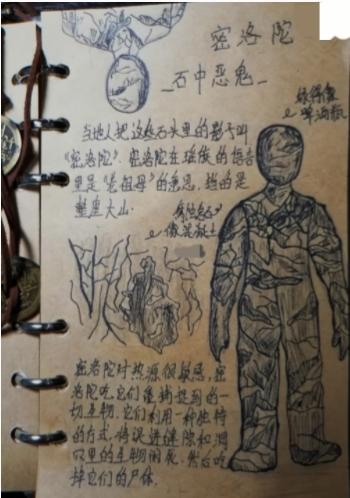 密洛陀
石中恶鬼
当地人把这些石头里的影子叫
《密洛陀》. 密洛陀在瑶族的语言
里是“老祖母”的意思, 指的是
整座大山.
像混凝土
密洛陀对热源很敏感, 密
洛陀吃它们能捕捉到的一
切生物, 它们利用一种独特
的方式, 将误进缝隙和洞
穴里的生物闷死, 然后吃
掉它们的尸体.